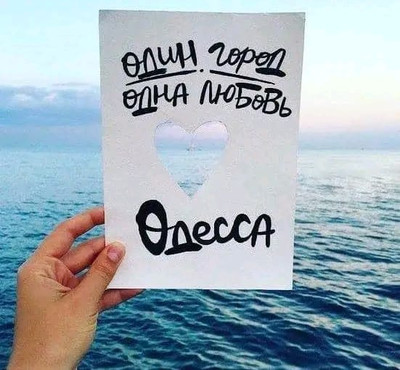 один город
одна любовь
Одесса